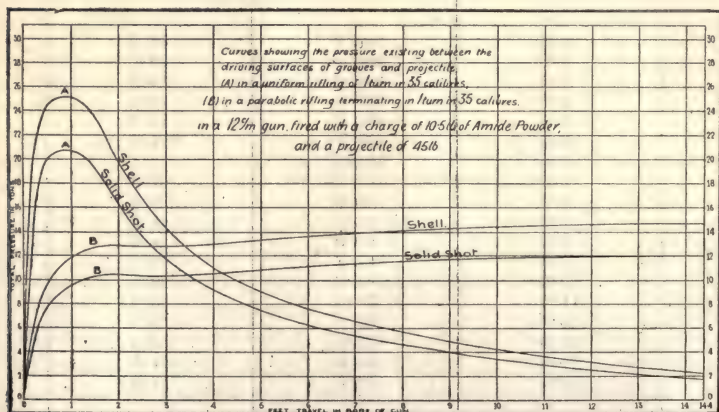 Curves showing the pressure existing between the
driving surfaces of grooves and projectile
(A) in a uniform rifling of 1 turn in 35 calibres,
(B) in a parabolic rifling terminating in 1 turn in 35 calibres.
in a 12c/m gun, fired with a charge of 10·5lb of Amide Powder,
and a projectile of 45lb
30 30
28 28
26 A 26
24 24
22 22
A
20 Shell 20
18 Solid Shot 18
16 16
14 Shell. 14
B
12 Solid Shot 12
B
10 10
8 8
6 6
4 4
2 2
0 0
0 1 2 3 4 5 6 7 8 9 10 11 12 13 14 14·4
FEET TRAVEL IN BORE OF GUN